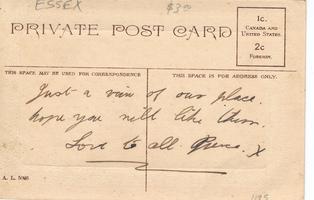 ESSEX
$3.00
PRIVATE POST CARD
1c.
CANADA AND
UNITED STATES.
2c
FOREIGN.
THIS SPACE MAY BE USED FOR CORRESPONDENCE
THIS SPACE IS FOR ADDRESS ONLY.
Just a view of our place.
hope you will like them.
Love to all. X